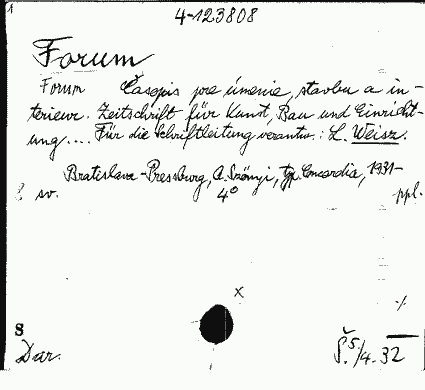 4-123808
Forum
Forum Časopis pre úmenie, stavbu a in-
terieur. Zeitschrift für Kunst, Bau und Einricht-
ung.... Für die Schriftleitung verantw.: L. Weisz.
Bratislava-Pressburg, A. Szőnyi, typ. Concordia, 1931-
sv. 4° ppl.
x
§
Dar.